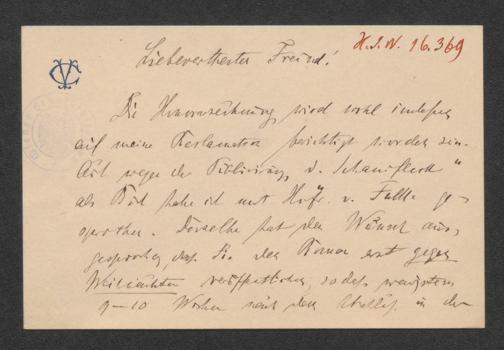 H.I.N. 16.369
Liebverehrter Freund!
Die Honorarrechnung wird wohl indessen
auf meine Reclamation berichtigt worden sein.
Auch wegen der Publicirung d. „Schandfleck“
als Buch habe ich mit Hofr. v. Falke ge-
sprochen. Derselbe hat den Wunsch aus-
gesprochen, daß Sie den Roman erst gegen
Weihnachten veröffentlichen, so daß wenigstens
9–10 Wochen seit dem in der